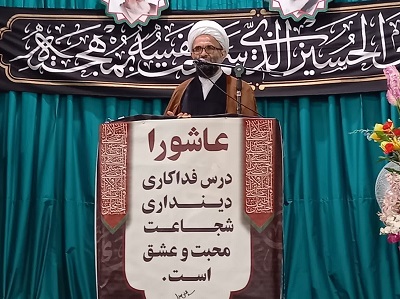 الحسین الذی بمهجته
عاشورا
درس فداکاری
دینداری
شجاعت
محبت و عشق
است.